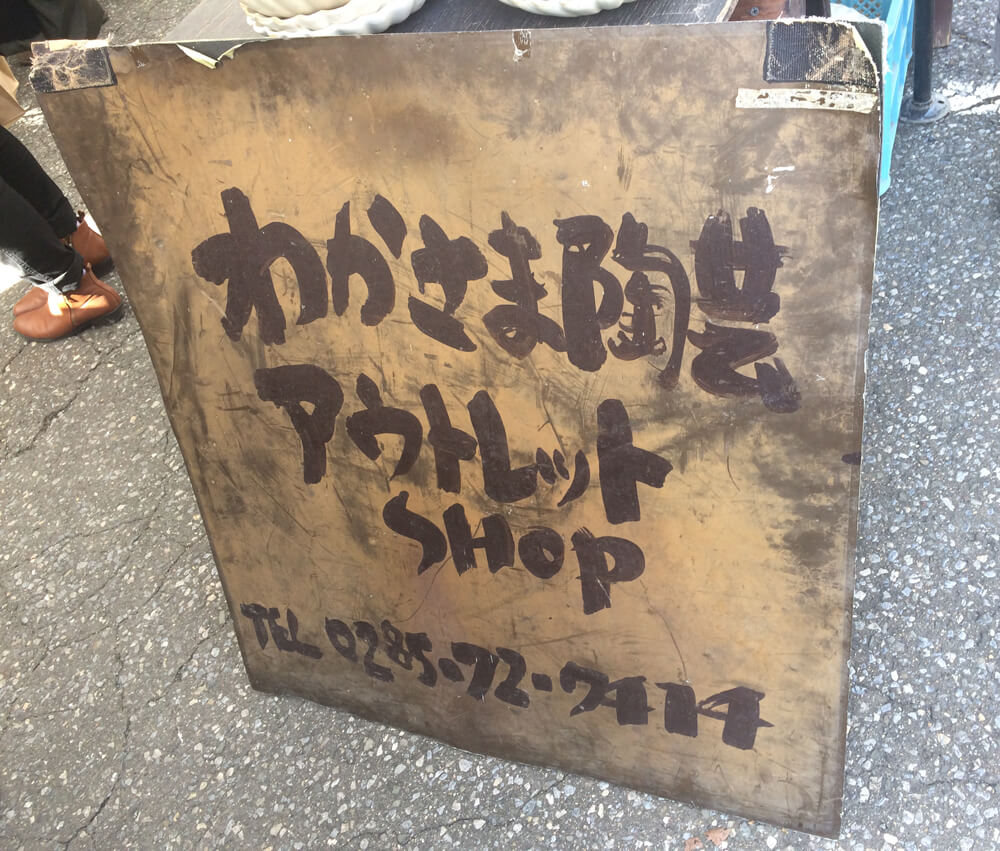 わかさま陶芸
アウトレット
SHOP
TEL 0285-72-7474